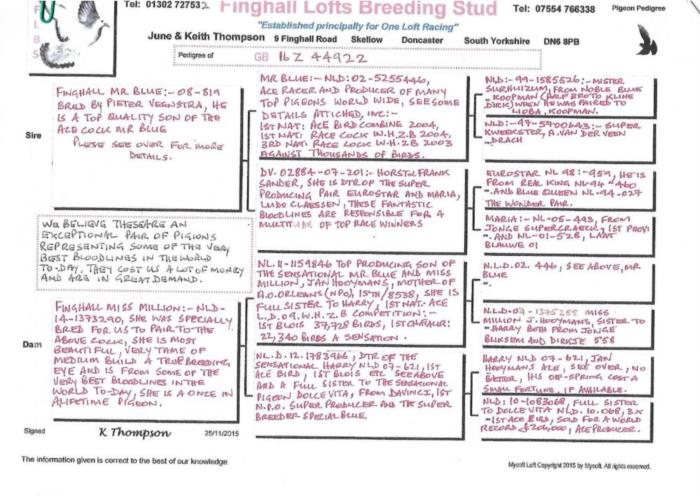 Tel: 01302 727532
Finghall Lofts Breeding Stud
Tel: 07554 766338
Pigeon Pedigree
"Established principally for One Loft Racing"
June & Keith Thompson 9 Finghall Road Skellow Doncaster South Yorkshire DN6 8PB
Pedigree of
GB 16 Z 44922
Sire
FINGHALL MR BLUE:- 08-819
BRED BY PIETER VEENSTRA, HE
IS A TOP QUALITY SON OF THE
ACE COCK MR BLUE
PLEASE SEE OVER FOR MORE
DETAILS.
MR BLUE:- NLD: 02-5255446,
ACE RACER AND PRODUCER OF MANY
TOP PIGEONS WORLD WIDE, SEE SOME
DETAILS ATTICHED, INC:-
1ST NAT: ACE BIRD COMBINE 2004,
1ST NAT: RACE COCK W.H.Z.B 2004,
3RD NAT: RACE COCK W.H.Z.B 2003
AGAINST THOUSANDS OF BIRDS.
NLD:- 99-1585526:- MISTER
SURHUIZUM, FROM NOBLE BLUE
- KOOPMAN (HALF BROTO KLINE
DIRK) WHEN HE WAS PAIRED TO
LIOBA, KOOPMAN.
NLD:- 97-5700643:- SUPER
KWEEKSTER, A. VAN DER VEEN
- DRACH
DV. 02884-07-201:- HORST & FRANK
SANDER, SHE IS DTR OF THE SUPER
PRODUCING PAIR EUROSTAR AND MARIA,
LUDO CLAESSEN, THESE FANTASTIC
BLOODLINES ARE RESPONSIBLE FOR A
MULTITUDE OF TOP RACE WINNERS
EUROSTAR NL 98:- 954, HE IS
FROM REAL KING NL-94 - 460
- AND BLUE QUEEN NL-94-027
THE WONDER PAIR.
MARIA:- NL-05-493, FROM
JONGE SUPERCRACK, 1ST PROVI
- AND NL-01-528, LAAT
BLAUWE 01
WE BELIEVE THESE ARE AN
EXCEPTIONAL PAIR OF PIGIONS
REPRESENTING SOME OF THE VERY
BEST BLOODLINES IN THE WORLD
TO-DAY, THEY COST US A LOT OF MONEY
AND ARE IN GREAT DEMAND.
Dam
FINGHALL MISS MILLION:- NLD-
14-1373290, SHE WAS SPECIALLY
BRED FOR US TO PAIR TO THE
ABOVE COCK, SHE IS MOST
BEAUTIFUL, VERY TAME OF
MEDIUM BUILD A TRUE BREEDING,
EYE AND IS FROM SOME OF THE
VERY BEST BLOODLINES IN THE
WORLD TO-DAY, SHE IS A ONCE IN
A LIFETIME PIGEON.
NL. 11-1159846 TOP PRODUCING SON OF
THE SENSATIONAL MR BLUE AND MISS
MILLION, JAN HOOYMANS, MOTHER OF
A.O. ORLEANS (NPO) 15TH/8538, SHE IS
FULL SISTER TO HARRY, 1ST NAT: ACE
L.D. 09. W.H.Z.B COMPETITION:-
1ST BLOIS 37,728 BIRDS, 1ST CHATAUR:
22,340 BIRDS A SENSATION.
N.L.D. 02. 446, SEE ABOVE, MR
BLUE
N.L.D-07 - 1375288 MISS
MILLION J. HOOYMANS, SISTER TO
- HARRY BOTH FROM JONGE
BLIKSEM AND DIRKJE 558
NL. D. 12. 1783966, DTR OF THE
SENSATIONAL HARRY NLD 07-621, 1ST
ACE BIRD, 1ST BLOIS ETC. SEE ABOVE
AND A FULL SISTER TO THE SENSATIONAL
PIGEON DOLCE VITA, FROM DAVINCI, 1ST
N.P.O. SUPER PRODUCER AND THE SUPER
BREEDER SPECIAL BLUE.
HARRY NLD 07-621, JAN
HOOYMANS ALE, SEE OVER, NO
BETTER, HIS OFF-SPRING COST A
SMALL FORTUNE, IF AVAILABLE.
NLD: 10-1083068, FULL SISTER
TO DOLCE VITA NLD. 10.068, 3 X
- 1ST ACE BIRD, SOLD FOR A WORLD
RECORD £206,000, ACE PRODUCER.
Signed
K Thompson
25/11/2015
The information given is correct to the best of our knowledge
Mysoft Loft Copyright 2015 by Mysoft. All rights reserved.